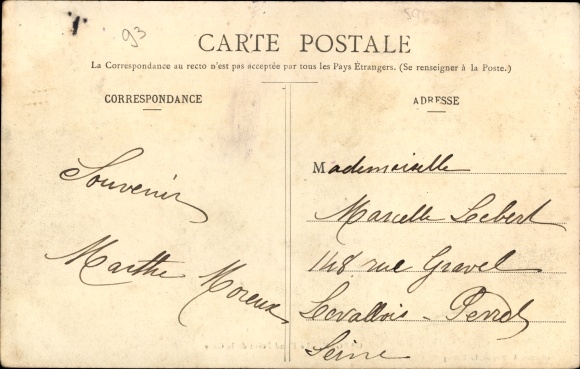 93
CARTE POSTALE
La Correspondance au recto n'est pas acceptée par tous les Pays Étrangers. (Se renseigner à la Poste.)
CORRESPONDANCE
Souvenir
Marthe Moreux
ADRESSE
Mademoiselle
Marcelle Lebert
148 rue Gravel
Levallois - Perret
Seine